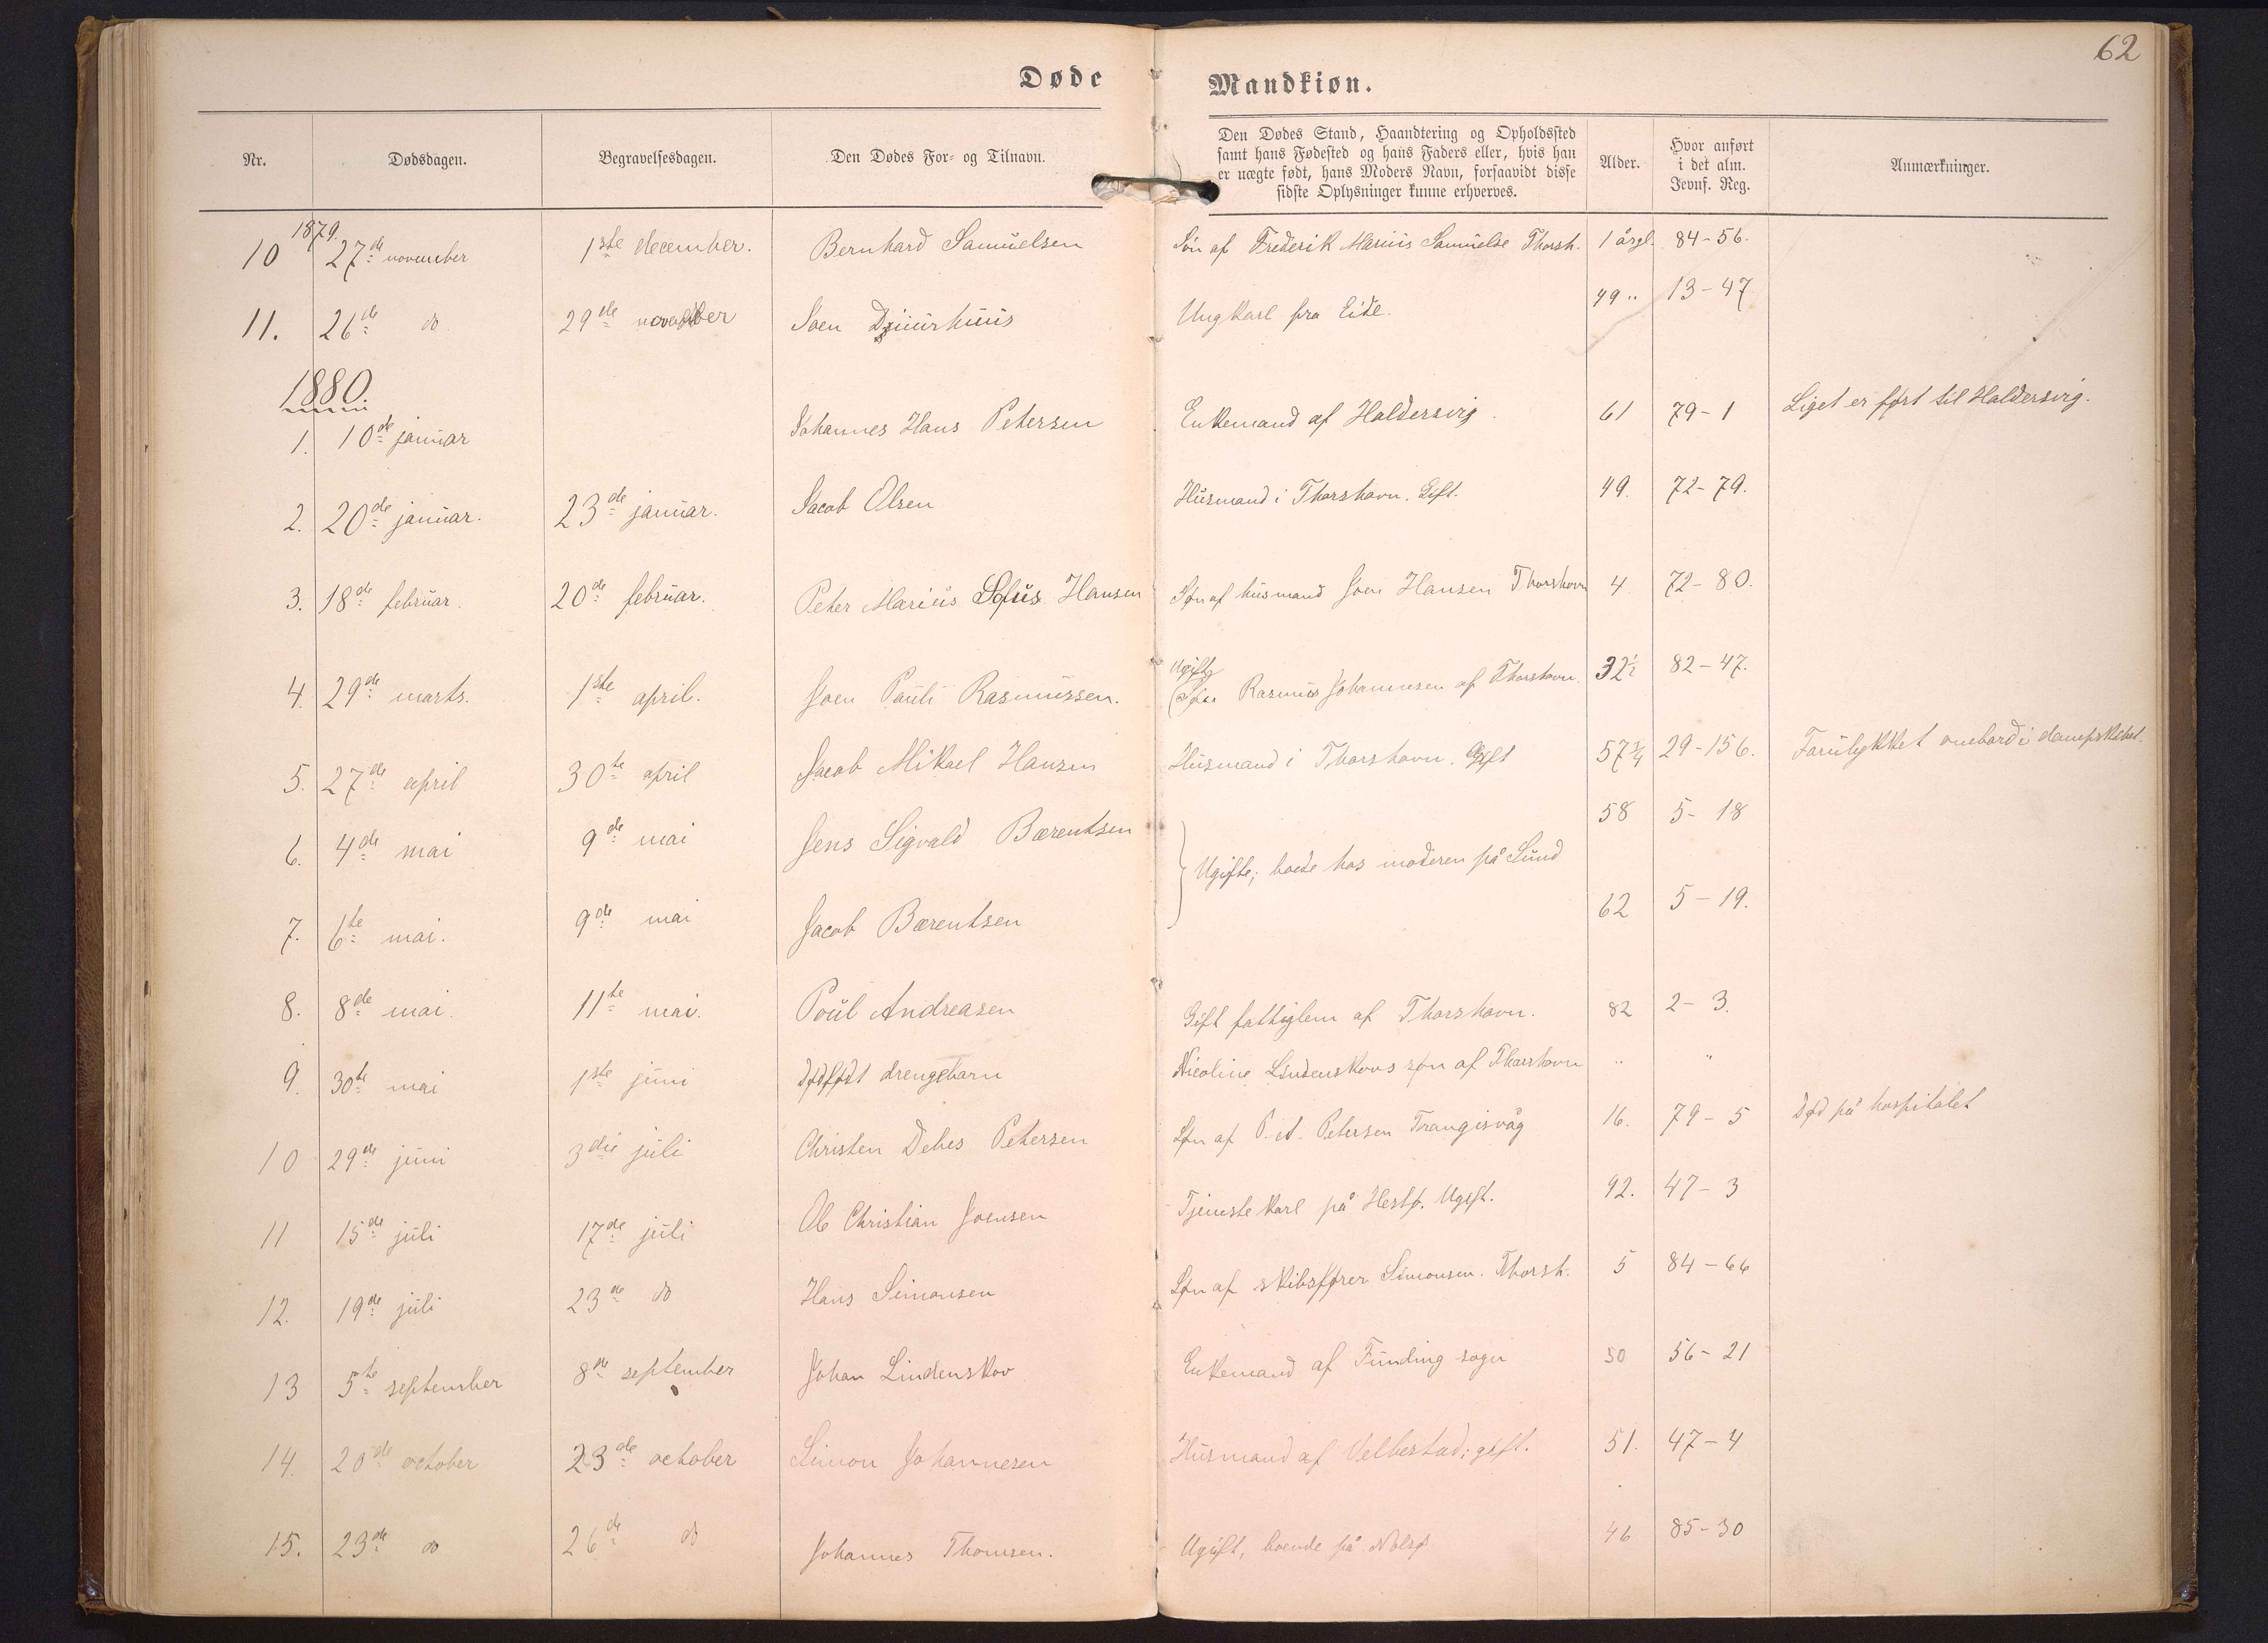 62
Døde Mandkiøn.
Nr. Dødsdagen. Begravelsesdagen. Den Dødes For- og Tilnavn. Den Dødes Stand, Haandtering og Opholdssted samt hans Fødested og hans Faders eller, hvis han er uægte født, hans Moders Navn, forsaavidt disse sidste Oplysninger kunne erhverves. Alder. Hvor anført i det alm. Jevnf. Reg. Anmærkninger.
1879.
10 27de november 1ste december. Bernhard Samuelsen Søn af Frederik Marius Samuelse Thorsh. 1 årgl. 84-56.
11. 26de do 29de november Joen Djuurhuus Ungkarl fra Eide. 49 " 13-47
1880.
1. 10de januar Johannes Hans Petersen Enkemand af Haldersvig. 61 79-1 Liget er ført til Haldersvig.
2. 20de januar. 23de januar. Jacob Olsen Husmand i Thorshavn. Gift. 49. 72-79.
3. 18de februar. 20de februar. Peter Marius Sofus Hansen Søn af husmand Joen Hansen Thorshavn 4 72-80.
4. 29de marts. 1ste april. Joen Pauli Rasmussen. Ugift Rasmus Johannesen af Thorshavn. 32½ 82-47.
5. 27de april 30te april Jacob Mikael Hansen Husmand i Thorshavn. Gift 57¾ 29-156. Forulykket ombord i dampskibet.
6. 4de mai 9de mai Jens Sigvald Bærentsen 58 5-18
Ugifte; boede hos moderen på Sund
7. 6te mai. 9de mai Jacob Bærentsen 62 5-19.
8. 8de mai. 11te mai. Poul Andreasen Gift fattiglem af Thorshavn. 82 2-3.
9. 30te mai 1ste juni Dødfødt drengebarn Nicoline Lindenskovs søn af Thorshavn " "
10 29de juni 3die juli Christen Debes Petersen Søn af P. A. Petersen Trangisvåg 16. 79-5 Død på hospitalet
11 15de juli 17de juli Ole Christian Joensen Tjenestekarl på Hestø. Ugift. 92. 47-3
12. 19de juli 23de do Hans Simonsen Søn af skibsfører Simonsen. Thorsh. 5 84-66
13 5te september 8de september Johan Lindenskov Enkemand af Funding sogn 50 56-21
14. 20de october 23de october Simon Johannesen Husmand af Velbestad; gift. 51. 47-4
15. 23de do 26de do Johannes Thomsen. Ugift, boende på Nolsø 46 85-30